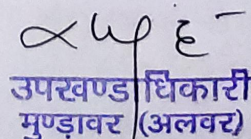 उपखण्ड अधिकारी
मुण्डावर (अलवर)